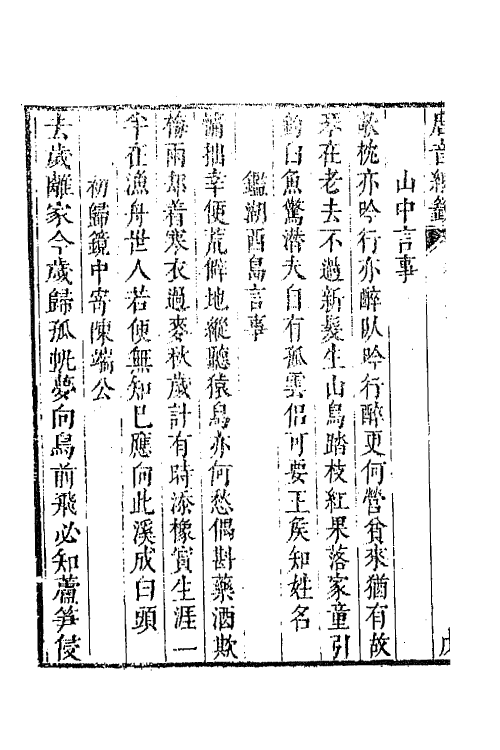 唐音統籤
山中言事
欹枕亦吟行亦醉臥吟行醉更何營貧來猶有故
琴在老去不過新髮生山鳥踏枝紅果落家童引
釣白魚驚潜夫自有孤雲侶可要王矦知姓名
鑑湖西島言事
慵拙幸便荒僻地縱聽猿鳥亦何愁偶斟藥酒欺
梅雨却着寒衣過麥秋歲計有時添橡實生涯一
半在漁舟世人若便無知已應向此溪成白頭
初歸鏡中寄陳端公
去歲離家今歲歸孤帆夢向鳥前飛必知蘆笋侵